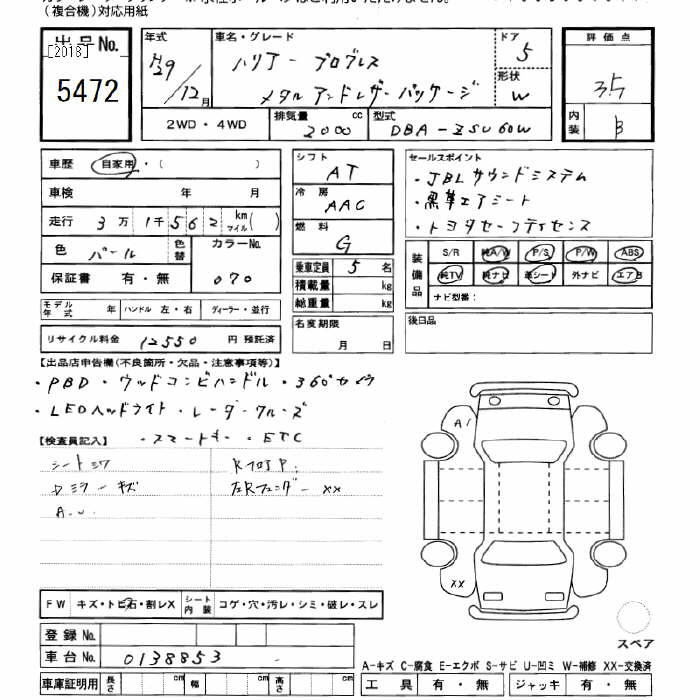 （複合機）対応用紙
出品No.
[2018]
5472
年式
H29/12月
車名・グレード
ハリアー プログレス
メタル アンド レザーパッケージ
ドア
5
形状
W
評価点
3.5
内装
B
2WD・4WD
排気量
2000 cc
型式
DBA-ZSU60W
車歴
自家用・（ ）
車検 年 月
走行 3万1千562 km マイル( )
色 パール
色替
カラーNo.
070
保証書 有・無
モデル年式 年 ハンドル 左・右 ディーラー・並行
リサイクル料金 12550 円 預託済
シフト
AT
冷房
AAC
燃料
G
乗車定員 5 名
積載量 kg
総重量 kg
名変期限
月 日
セールスポイント
・JBLサウンドシステム
・黒革エアシート
・トヨタセーフティセンス
装備品
S/R 純A/W P/S P/W ABS
純TV 純ナビ 革シート 外ナビ エアB
ナビ型番：
後日品
【出品店申告欄(不良箇所・欠品・注意事項等)】
・PBD・ウッドコンビハンドル・360°カメラ
・LEDヘッドライト・レーダークルーズ
・スマートキー・ETC
【検査員記入】
シートシワ
ミラーキズ
A.U.
左Rフェンダー XX
A1
XX
FW キズ・トビ石・割レX
シート内装 コゲ・穴・汚レ・シミ・破レ・スレ
登録No.
車台No. 0138853
車庫証明用 長さ cm 幅 cm 高さ cm
スペア
A-キズ C-腐食 E-エクボ S-サビ U-凹ミ W-補修 XX-交換済
工具 有・無 ジャッキ 有・無